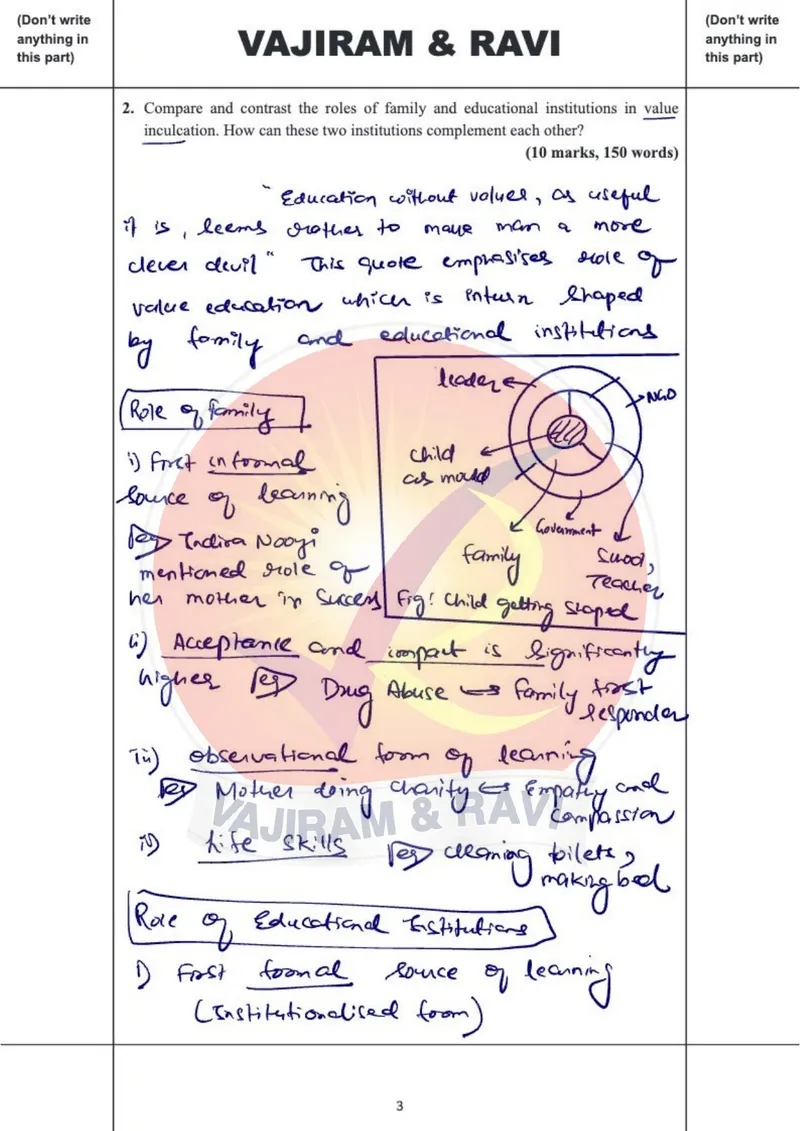 (Don't write
anything in
this part)
VAJIRAM & RAVI
(Don't write
anything in
this part)
2. Compare and contrast the roles of family and educational institutions in value
inculcation. How can these two institutions complement each other?
(10 marks, 150 words)
"Education without values, as useful
it is, seems rather to make man a more
clever devil" This quote emphasises role of
value education which is inturn shaped
by family and educational institutions
Role of family
i) First informal
source of learning
eg Indira Nooyi
mentioned role of
her mother in success
leader
NGO
Child
as mould
Government
family
School,
Teacher
Fig: Child getting shaped
ii) Acceptance and impact is significantly
higher eg Drug Abuse → family first
responder
iii) observational form of learning
eg Mother doing charity ↔ Empathy and
compassion
iv) Life skills eg cleaning toilets,
making bed
Role of Educational Institutions
i) First formal source of learning
(Institutionalised form)
VAJIRAM & RAVI
3